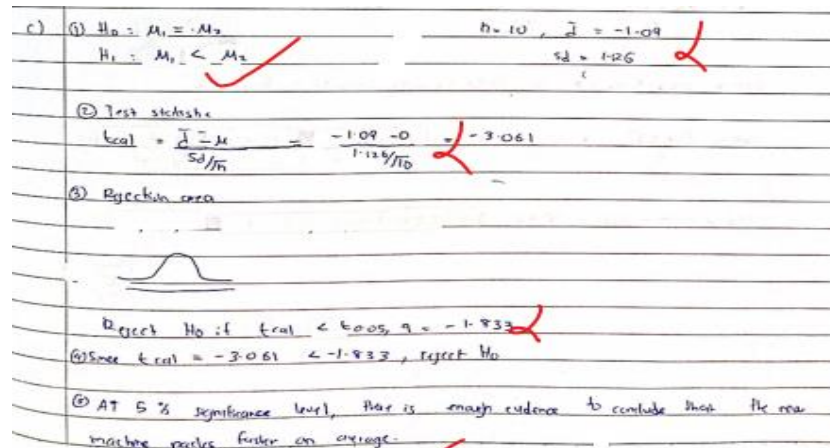 c) ① H₀ : μ₁ = μ₂ n = 10 , d̄ = -1.09
H₁ : μ₁ < μ₂ sd = 1.126
② Test statistic
tcal = d̄ - μ / sd/√n = -1.09 - 0 / 1.126/√10 = -3.061
③ Rejection area
Reject H₀ if tcal < t0.05, 9 = -1.833
④ Since tcal = -3.061 < -1.833, reject H₀
⑤ AT 5% significance level, there is enough evidence to conclude that the new
machine packs faster on average.